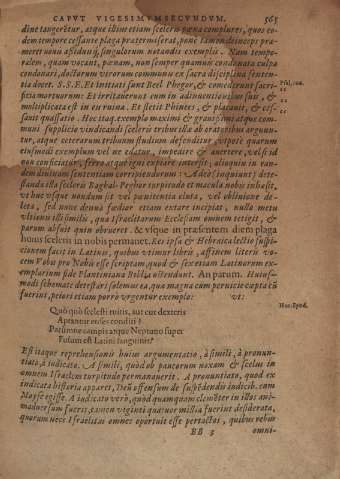 CAPVT VIGESIMVM SECVNDVM. 565
dine tangeretur, atque illius etiam sceleris pœna complares, quos eo-
dem tempore cessante plaga prætermiserat, pone tamen deinceps præ-
meret unius assiduis, singulorum notandis exemplis. Nam tempo-
ralem, quam vocant, pœnam, non semper quamvis condonata culpa
condonari, doctorum virorum communis ex sacra disciplina senten-
tia docet. S.S. Et initiati sunt Beel Phegor, & comederunt sacri-
ficia mortuorum: Et irritaverunt eum in adinventionibus suis, &
multiplicata est in eis ruina. Et stetit Phinees, & placavit, & ces-
savit quassatio. Hoc itaq. exemplo maximi & gravissimi atque com-
muni supplicio vindicandi sceleris tribus illæ ab oratoribus arguun-
tur, atque ceterarum tribuum studium defenditur, utpote quarum
eiusmodi exemplum vel ne edatur, impedire & avertere, vel si id
non conficiatur, ferro atque igni expiare intersit; alioquin in ean-
dem divinam sententiam corripiendarum: Adeo (inquiunt) dete-
standa ista sceleris Baghal-Peghor turpitudo et macula nobis inhæsit,
ut huc usque nondum sit vel pœnitentia eluta, vel oblivione de-
leta, sed nunc denuo fœdior etiam extare incipiat, nulla metu
ultionis illi simili, qua Israelitarum Ecclesiam omnem tetigit, &
parum abfuit quin obrueret. & vsque in præsentem diem plaga
huius sceleris in nobis permanet. Res ipsa & Hebraica lectio suspi-
cionem facit in Latinis, quibus utimur libris, affinem literis vo-
cem Vobis pro Nobis esse scriptam, quod & sex etiam Latinorum ex-
emplarium fide Plantiniana Biblia ostendunt. An parum. Huius-
modi schemate detestari solemus ea, quæ magna cum pernicie capta cum
fuerint, peiori etiam porro urgentur exemplo: vt:
Quò quò scelesti ruitis, aut cur dexteris
Aptantur enses conditi?
Parumne campis atque Neptuno super
Fusum est Latini sanguinis?
Est itaque reprehensionis huius argumentatio, à simili, à pronun-
tiato, à iudicato. A simili, quòd ob paucorum noxam & scelus in
omnem Israelem turpitudo permanaverit. A pronuntiato, quod ex
indicata historia apparet, Deū offensum de suspēdendis iudicib. cum
Moyse egisse. A iudicato verò, quod quamquam clemēter in illos ani-
madversum fuerit, tamen viginti quatuor millia fuerint desiderata,
quorum nece Israelitas omnes oportuit esse perfectos, quibus rebus
BB 3 omni-
Psal. 105.
Hor. Epod.